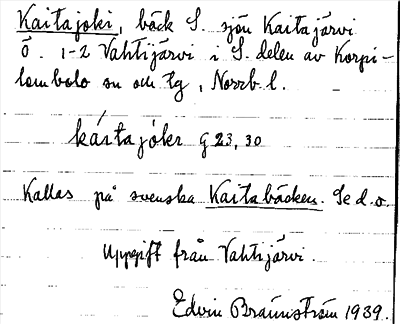 Kaitajoki, bäck S. sjön Kaitajärvi
Ö. 1-2 Vahtijärvi i S. delen av Korpi-
lombolo sn och tg, Norrb. l.
kái̯tajóki G 23, 30
Kallas på svenska Kaitabäcken. Se d.o.
Uppgift från Vahtijärvi.
Edvin Brännström 1939.